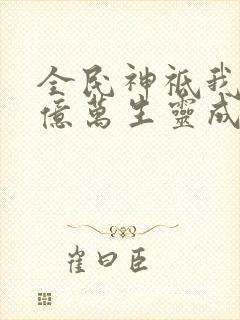 全民神祇我
億萬生靈成
崔曰臣